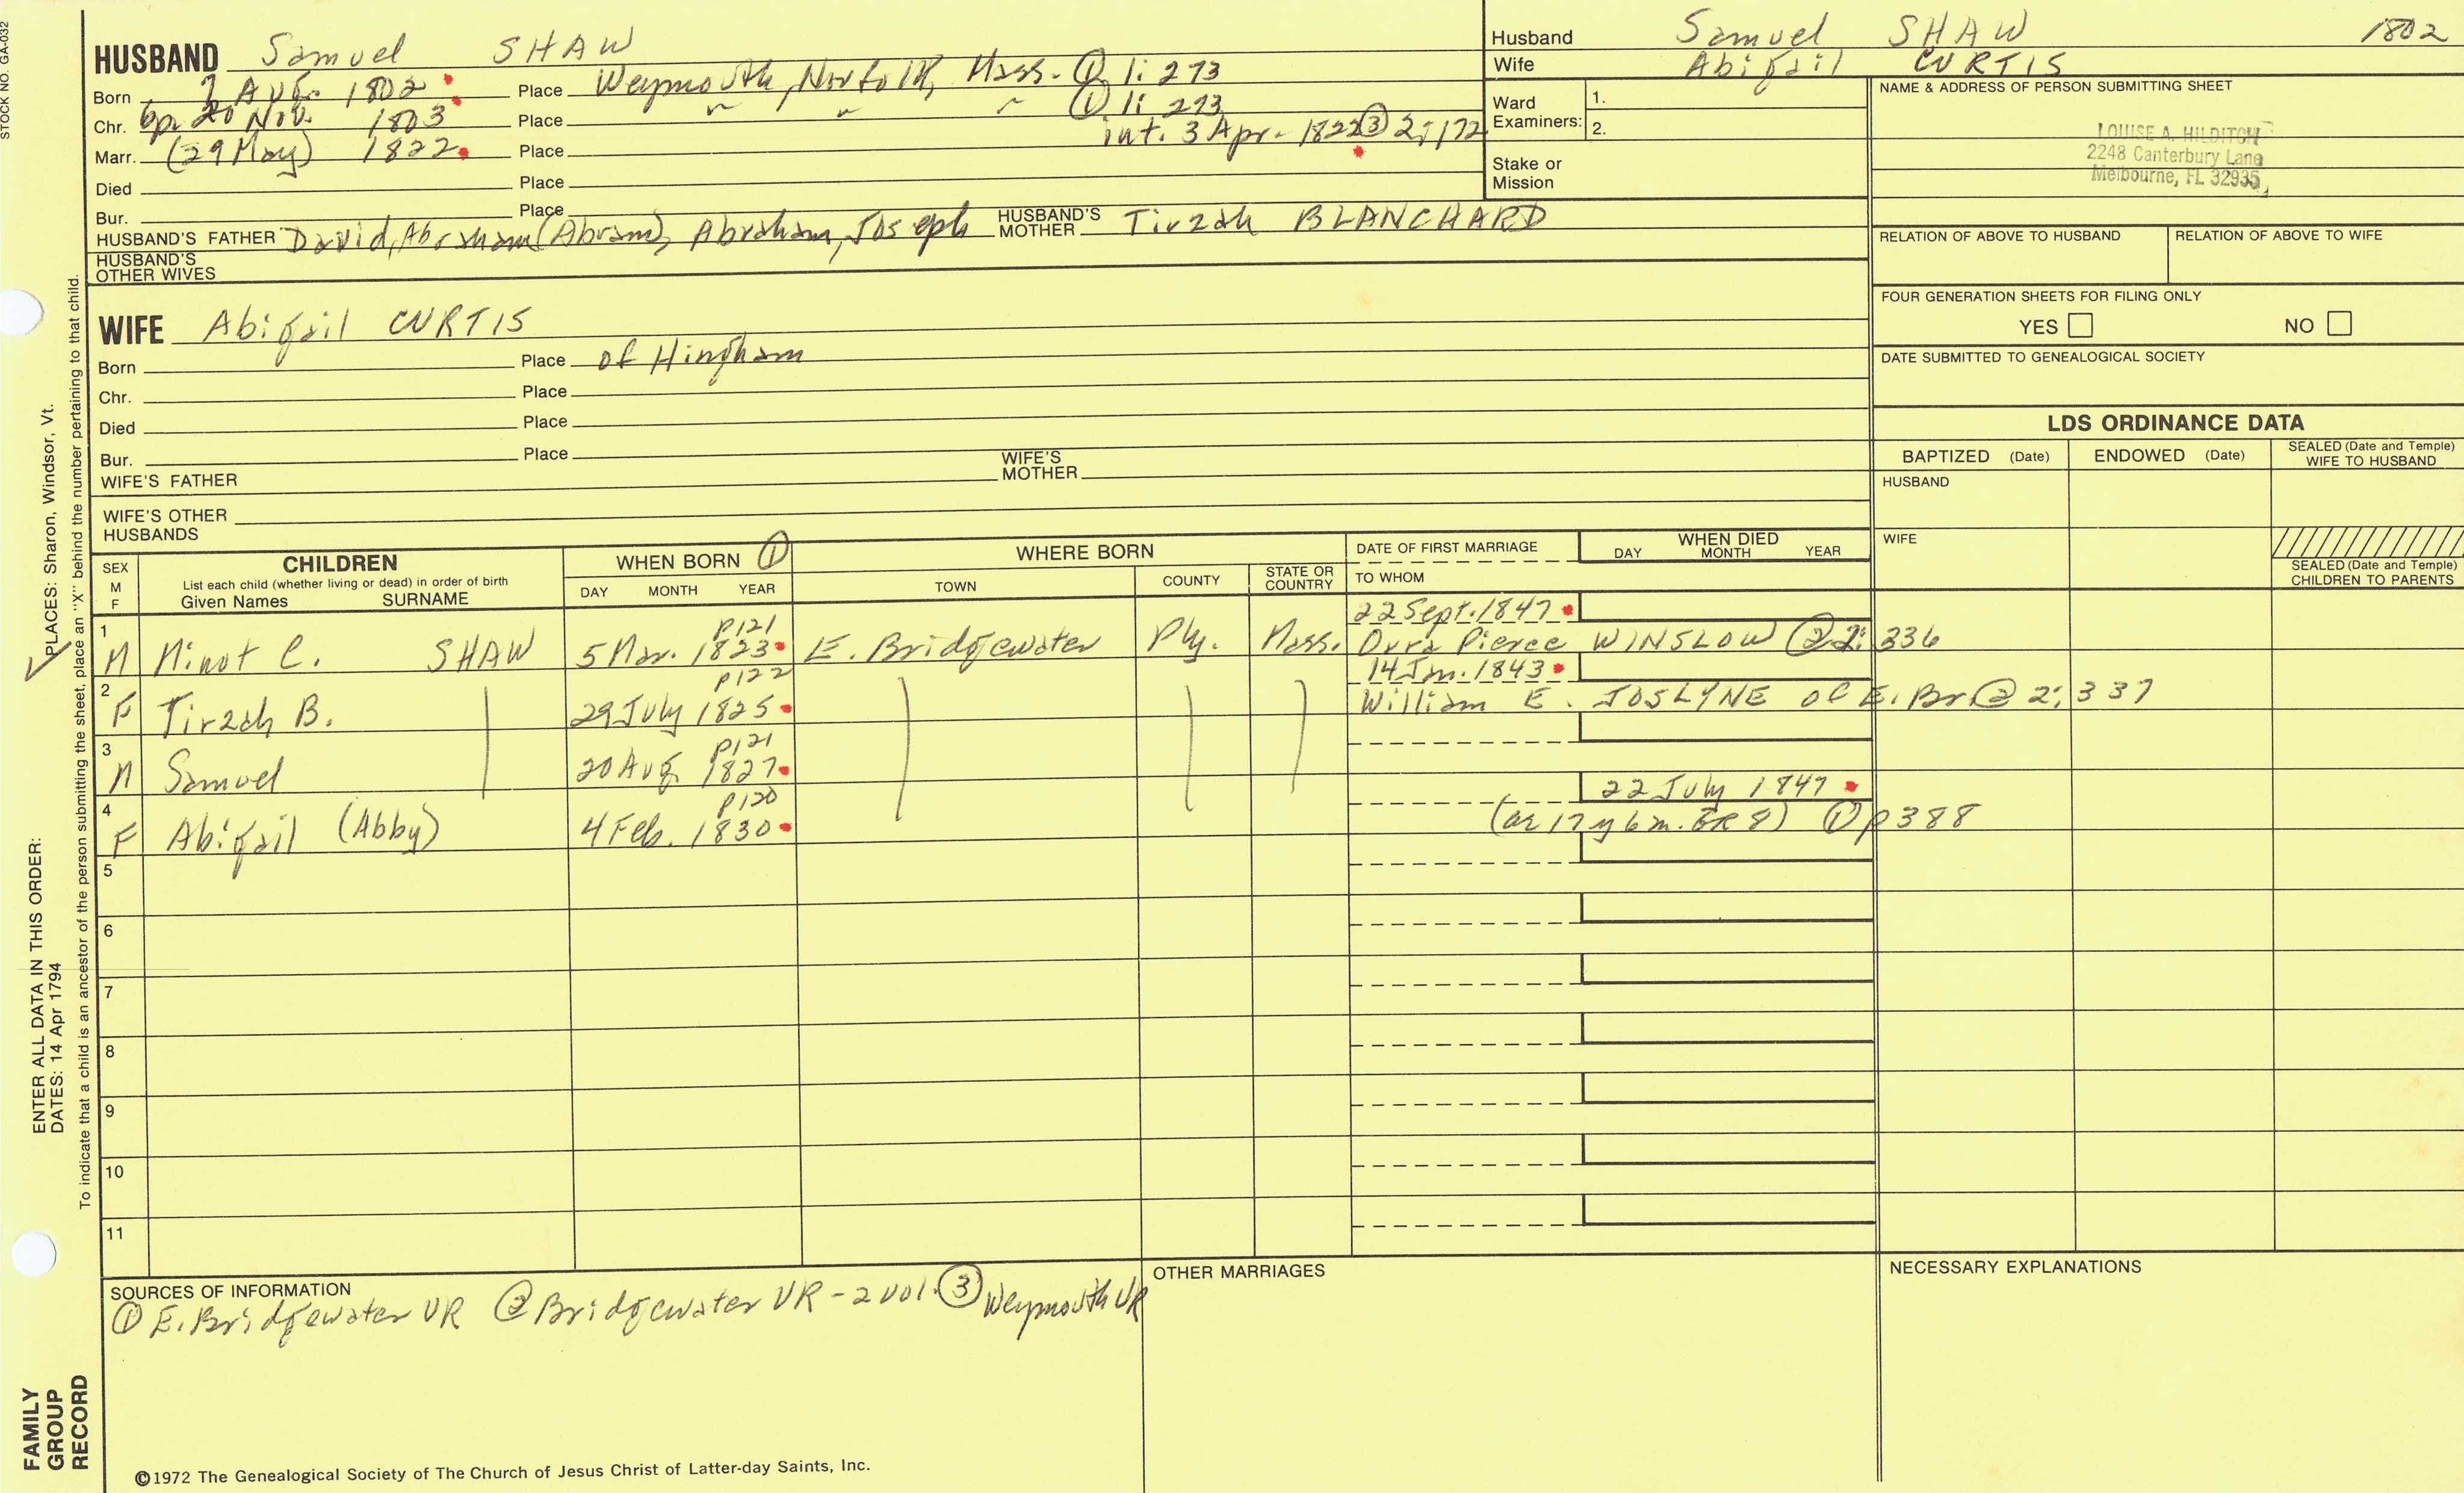 STOCK NO. GA-032
HUSBAND Samuel SHAW
Born 7 Aug. 1802 Place Weymouth, Norfolk, Mass. ① 1: 273
Chr. bp. 20 Nov. 1803 Place " " " ① 1: 273
Marr. (29 May) 1822 Place int. 3 Apr. 1822 ③ 2:172
Died Place
Bur. Place
HUSBAND'S FATHER David, Abraham (Abram), Abraham, Joseph HUSBAND'S MOTHER Tirzah BLANCHARD
HUSBAND'S OTHER WIVES
Husband Samuel SHAW 1802
Wife Abigail CURTIS
Ward Examiners: 1.
2.
Stake or Mission
NAME & ADDRESS OF PERSON SUBMITTING SHEET
LOUISE A. HILDITCH
2248 Canterbury Lane
Melbourne, FL 32935
RELATION OF ABOVE TO HUSBAND RELATION OF ABOVE TO WIFE
FOUR GENERATION SHEETS FOR FILING ONLY
YES NO
DATE SUBMITTED TO GENEALOGICAL SOCIETY
WIFE Abigail CURTIS
Born Place of Hingham
Chr. Place
Died Place
Bur. Place
WIFE'S FATHER WIFE'S MOTHER
WIFE'S OTHER HUSBANDS
LDS ORDINANCE DATA
BAPTIZED (Date) ENDOWED (Date) SEALED (Date and Temple) WIFE TO HUSBAND
HUSBAND
WIFE
SEALED (Date and Temple) CHILDREN TO PARENTS
SEX M F
CHILDREN
List each child (whether living or dead) in order of birth
Given Names SURNAME
WHEN BORN ①
DAY MONTH YEAR
WHERE BORN
TOWN COUNTY STATE OR COUNTRY
DATE OF FIRST MARRIAGE
TO WHOM
WHEN DIED
DAY MONTH YEAR
1 p121 22 Sept. 1847
M Minot C. SHAW 5 Mar. 1823 E. Bridgewater Ply. Mass. Pierce WINSLOW ② 2: 336
2 p122 14 Jan. 1843
F Tirzah B. 29 July 1825 William E. JOSLYNE of E. Br ② 2: 337
3 p121
M Samuel 20 Aug. 1827
4 p120 22 July 1847
F Abigail (Abby) 4 Feb. 1830 (ae 17 y 6 m. GR 8) ① p388
5
6
7
8
9
10
11
SOURCES OF INFORMATION
① E. Bridgewater VR ② Bridgewater VR - 2 vol. ③ Weymouth VR
OTHER MARRIAGES
NECESSARY EXPLANATIONS
©1972 The Genealogical Society of The Church of Jesus Christ of Latter-day Saints, Inc.
FAMILY GROUP RECORD
ENTER ALL DATA IN THIS ORDER:
DATES: 14 Apr 1794
PLACES: Sharon, Windsor, Vt.
To indicate that a child is an ancestor of the person submitting the sheet, place an "X" behind the number pertaining to that child.